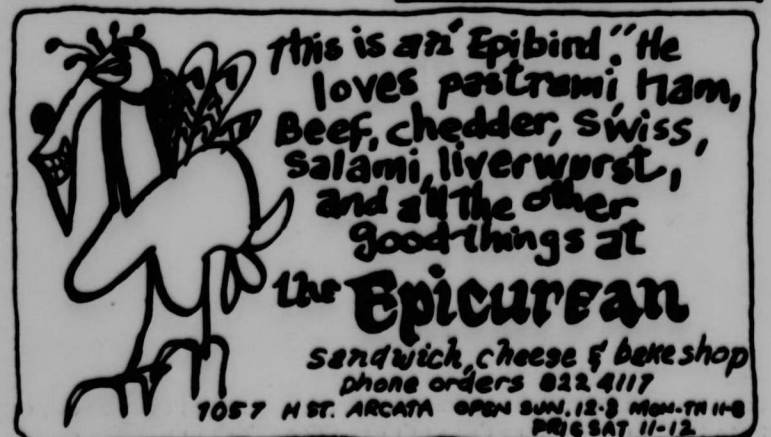 This is an "Epibird." He
loves pastrami, Ham,
Beef, chedder, Swiss,
Salami, liverwurst,
and all the other
good things at
the Epicurean
sandwich, cheese & bakeshop
phone orders 822 4117
1057 H ST. ARCATA OPEN SUN. 12-8 MON-TH 11-8
FRI & SAT 11-12